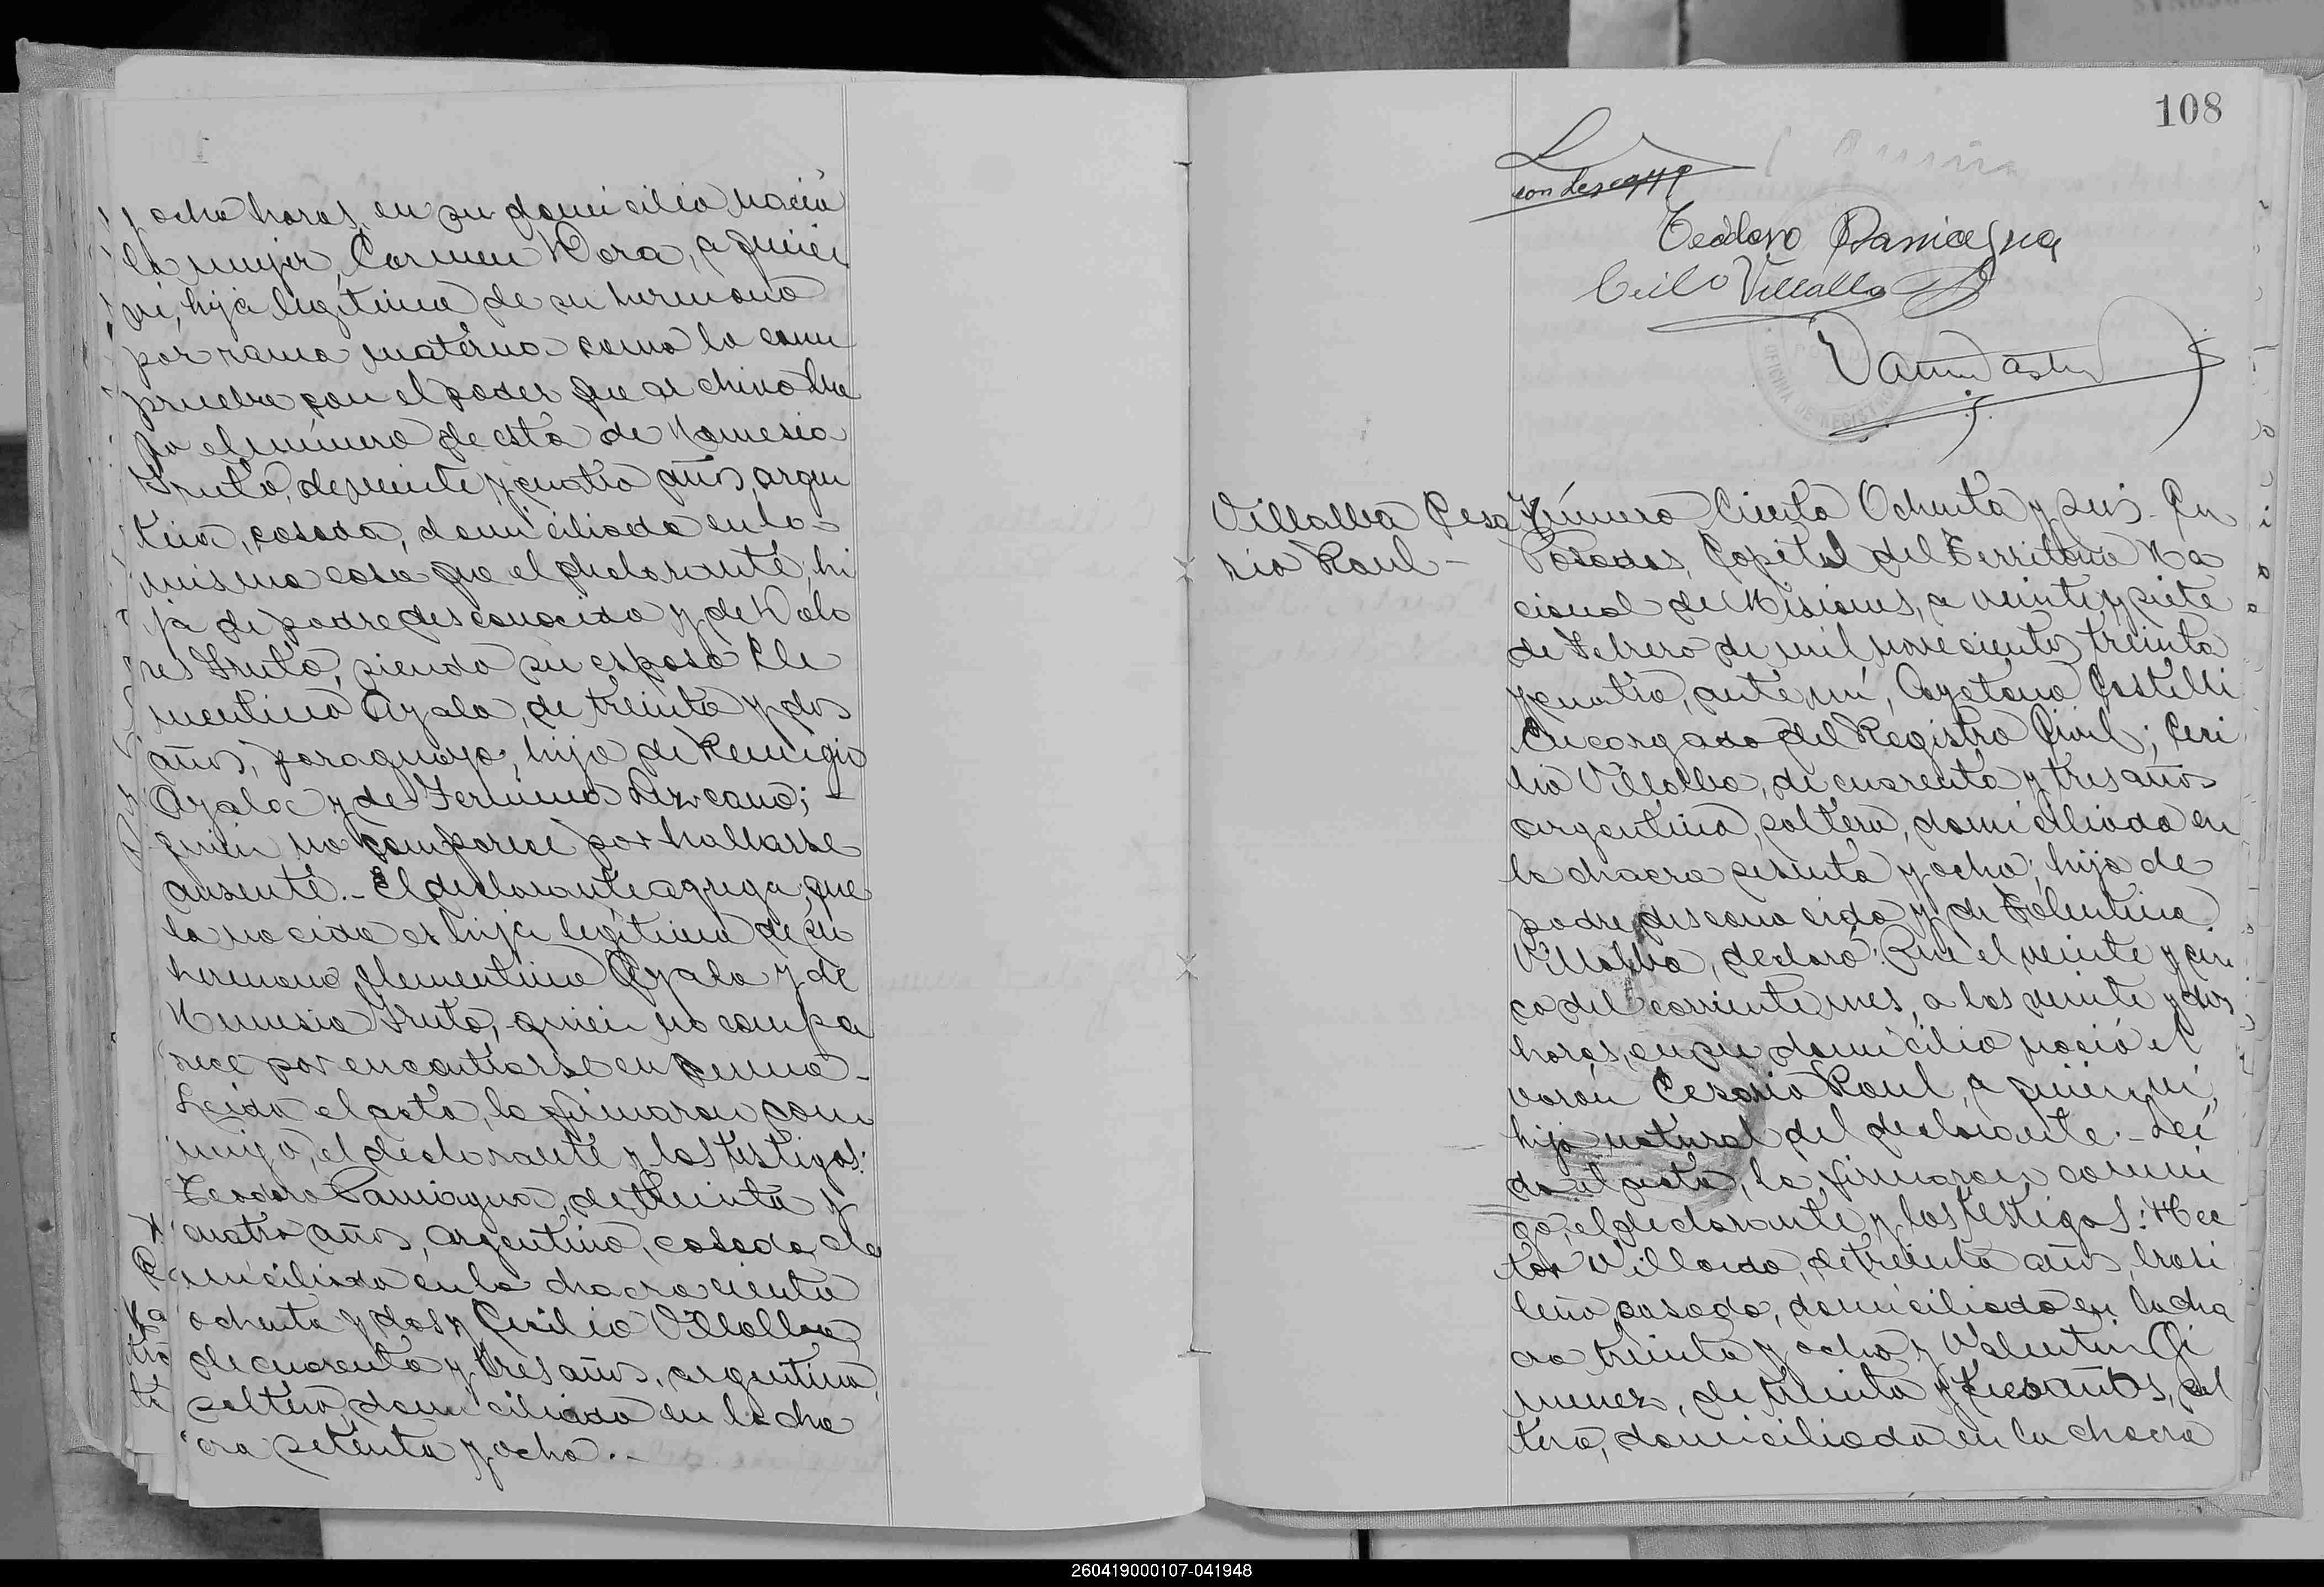 y ocho horas, en su domicilio nació
la mujer, Carmen Dora, a quien
vi, hija legítima de su hermano
por rama materna como lo com
prueba con el poder que archivo ba
jo el número de esta de Nemesia
Fruto, de veinte y cuatro años, argen
tina, casada, domiciliada en la
misma casa que el declarante, hi
ja de padre desconocido y de Dolo
res Fruto, siendo su esposo Cle
mentino Ayala, de treinta y dos
años, paraguayo, hijo de Remigio
Ayala y de Fermina Lezcano; -
quien no comparece por hallarse
ausente.- El declarante agrega, que
la nacida es hija legítima de su
hermano, Clementino Ayala y de
Nemesia Fruto, quien no compa
rece por encontrarse en cama -
Leída el acta, la firmaron con
migo, el declarante y los testigos:
Teodoro Paniagua, de treinta y
cuatro años, argentino, casado, do
miciliado en la chacra ciento
ochenta y dos y Cirilio Villalba
de cuarenta y tres años, argentino,
soltero, domiciliado en la cha
cra setenta y ocho.-
108
Teodoro Paniagua
Villalba
OFICINA DE REGISTRO
Villalba Cesa
rio Raul -
Número Ciento Ochenta y seis - En
Posadas, Capital del Territorio Na
cional de Misiones, a veinte y siete
de Febrero de mil novecientos treinta
y cuatro, ante mí, Cayetano Castelli
Encargado del Registro Civil; Ceri
lio Villalba, de cuarenta y tres años
argentino, soltero, domiciliado en
la chacra setenta y ocho, hijo de
padre desconocido y de Tolentina
Villalba, declaró: Que el veinte y cin
co del corriente mes, a las veinte y dos
horas, en su domicilio nació el
varón Cesario Raul, a quien vi,
hijo natural del declarante.- Leí
da el acta, la firmaron conmi
go, el declarante y los testigos: Hec
tor Villordo, de treinta años, brasi
leño, casado, domiciliado en la cha
cra treinta y ocho y Valentin Gi
menez, de treinta y años, sol
tero, domiciliado en la chacra
260419000107-041948